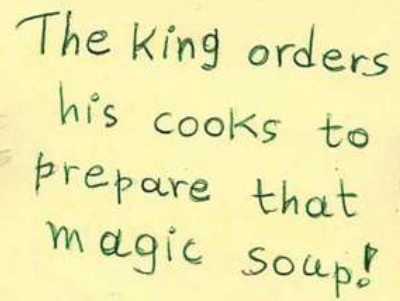 The king orders
his cooks to
prepare that
magic soup!